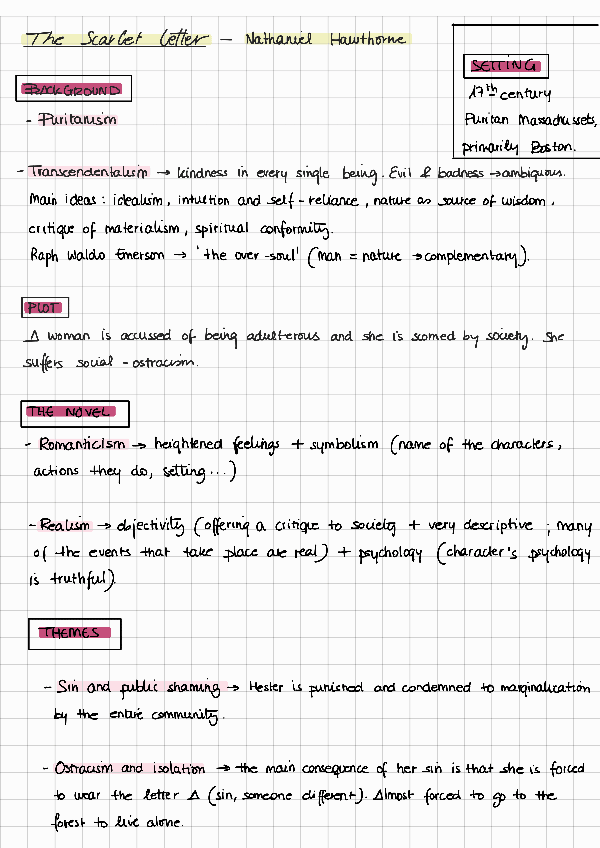 The Scarlet Letter - Nathaniel Hawthorne
SETTING
17th century
Puritan Massachussets,
primarily Boston.
BACKGROUND
- Puritanism
- Transcendentalism → kindness in every single being. Evil & badness → ambiguous.
Main ideas: idealism, intuition and self-reliance, nature as source of wisdom,
critique of materialism, spiritual conformity.
Raph Waldo Emerson → 'the over-soul' (man = nature → complementary).
PLOT
A woman is accussed of being adulterous and she is scorned by society. She
suffers social-ostracism.
THE NOVEL
- Romanticism → heightened feelings + symbolism (name of the characters,
actions they do, setting...)
- Realism → objectivity (offering a critique to society + very descriptive; many
of the events that take place are real) + psychology (character's psychology
is truthful).
THEMES
- Sin and public shaming → Hester is punished and condemned to marginalication
by the entire community.
- Ostracism and isolation → the main consequence of her sin is that she is forced
to wear the letter A (sin, someone different). Almost forced to go to the
forest to live alone.